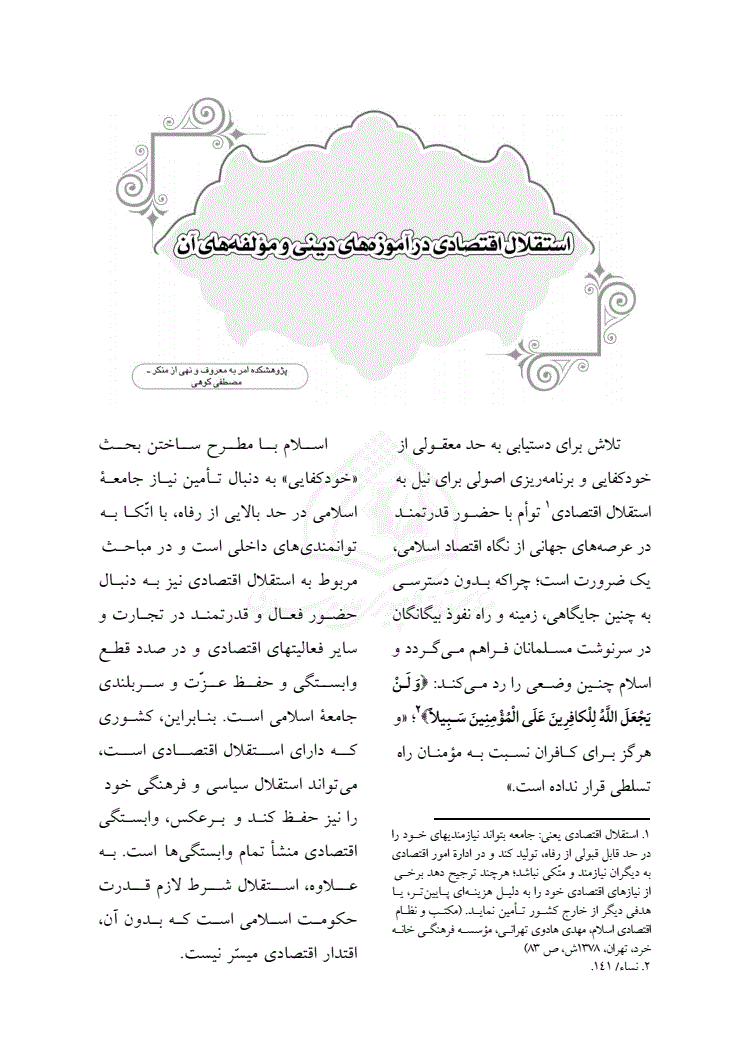 استقلال اقتصادی در آموزه‌های دینی و مؤلفه‌های آن
پژوهشکده امر به معروف و نهی از منکر ـ
مصطفی کوهی
تلاش برای دستیابی به حد معقولی از
خودکفایی و برنامه‌ریزی اصولی برای نیل به
استقلال اقتصادی۱ توأم با حضور قدرتمند
در عرصه‌های جهانی از نگاه اقتصاد اسلامی،
یک ضرورت است؛ چراکه بدون دسترسی
به چنین جایگاهی، زمینه و راه نفوذ بیگانگان
در سرنوشت مسلمانان فراهم می‌گردد و
اسلام چنین وضعی را رد می‌کند: ﴿وَ لَنْ
يَجْعَلَ اللَّهُ لِلْكافِرِينَ عَلَى الْمُؤْمِنِينَ سَبِيلاً﴾۲؛ «و
هرگز برای کافران نسبت به مؤمنان راه
تسلطی قرار نداده است.»
۱. استقلال اقتصادی یعنی: جامعه بتواند نیازمندیهای خود را
در حد قابل قبولی از رفاه، تولید کند و در ادارهٔ امور اقتصادی
به دیگران نیازمند و متّکی نباشد؛ هرچند ترجیح دهد برخی
از نیازهای اقتصادی خود را به دلیل هزینه‌ای پایین‌تر، یا
هدفی دیگر از خارج کشور تأمین نماید. (مکتب و نظام
اقتصادی اسلام، مهدی هادوی تهرانی، مؤسسه فرهنگی خانه
خرد، تهران، ۱۳۷۸ش، ص ۸۳)
۲. نساء/ ۱۴۱.
اسلام با مطرح ساختن بحث
«خودکفایی» به دنبال تأمین نیاز جامعهٔ
اسلامی در حد بالایی از رفاه، با اتّکا به
توانمندی‌های داخلی است و در مباحث
مربوط به استقلال اقتصادی نیز به دنبال
حضور فعال و قدرتمند در تجارت و
سایر فعالیتهای اقتصادی و در صدد قطع
وابستگی و حفظ عزّت و سربلندی
جامعهٔ اسلامی است. بنابراین، کشوری
که دارای استقلال اقتصادی است،
می‌تواند استقلال سیاسی و فرهنگی خود
را نیز حفظ کند و برعکس، وابستگی
اقتصادی منشأ تمام وابستگی‌ها است. به
علاوه، استقلال شرط لازم قدرت
حکومت اسلامی است که بدون آن،
اقتدار اقتصادی میسّر نیست.